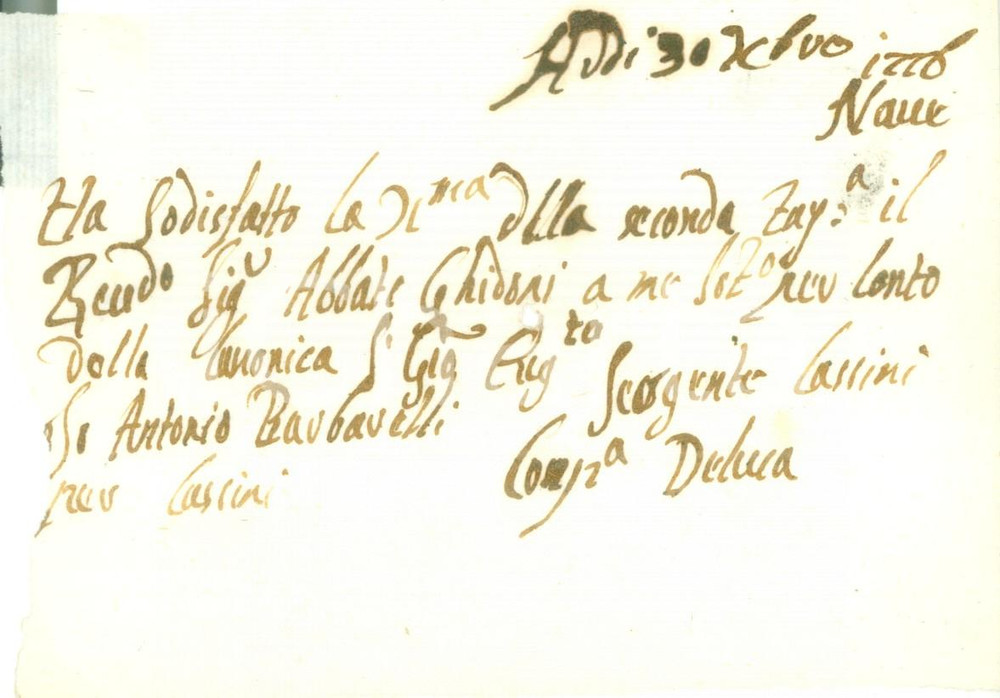 Addi 30 Xbre 1776
Nave
Ha sodisfatto la Xma della seconda Tay.a il
Revdo Sigr Abbate Ghidoni a me Sotto per Conto
della Canonica S
Io Antonio Barbarelli Sergente Cassini
per Cassini Compa Deluca